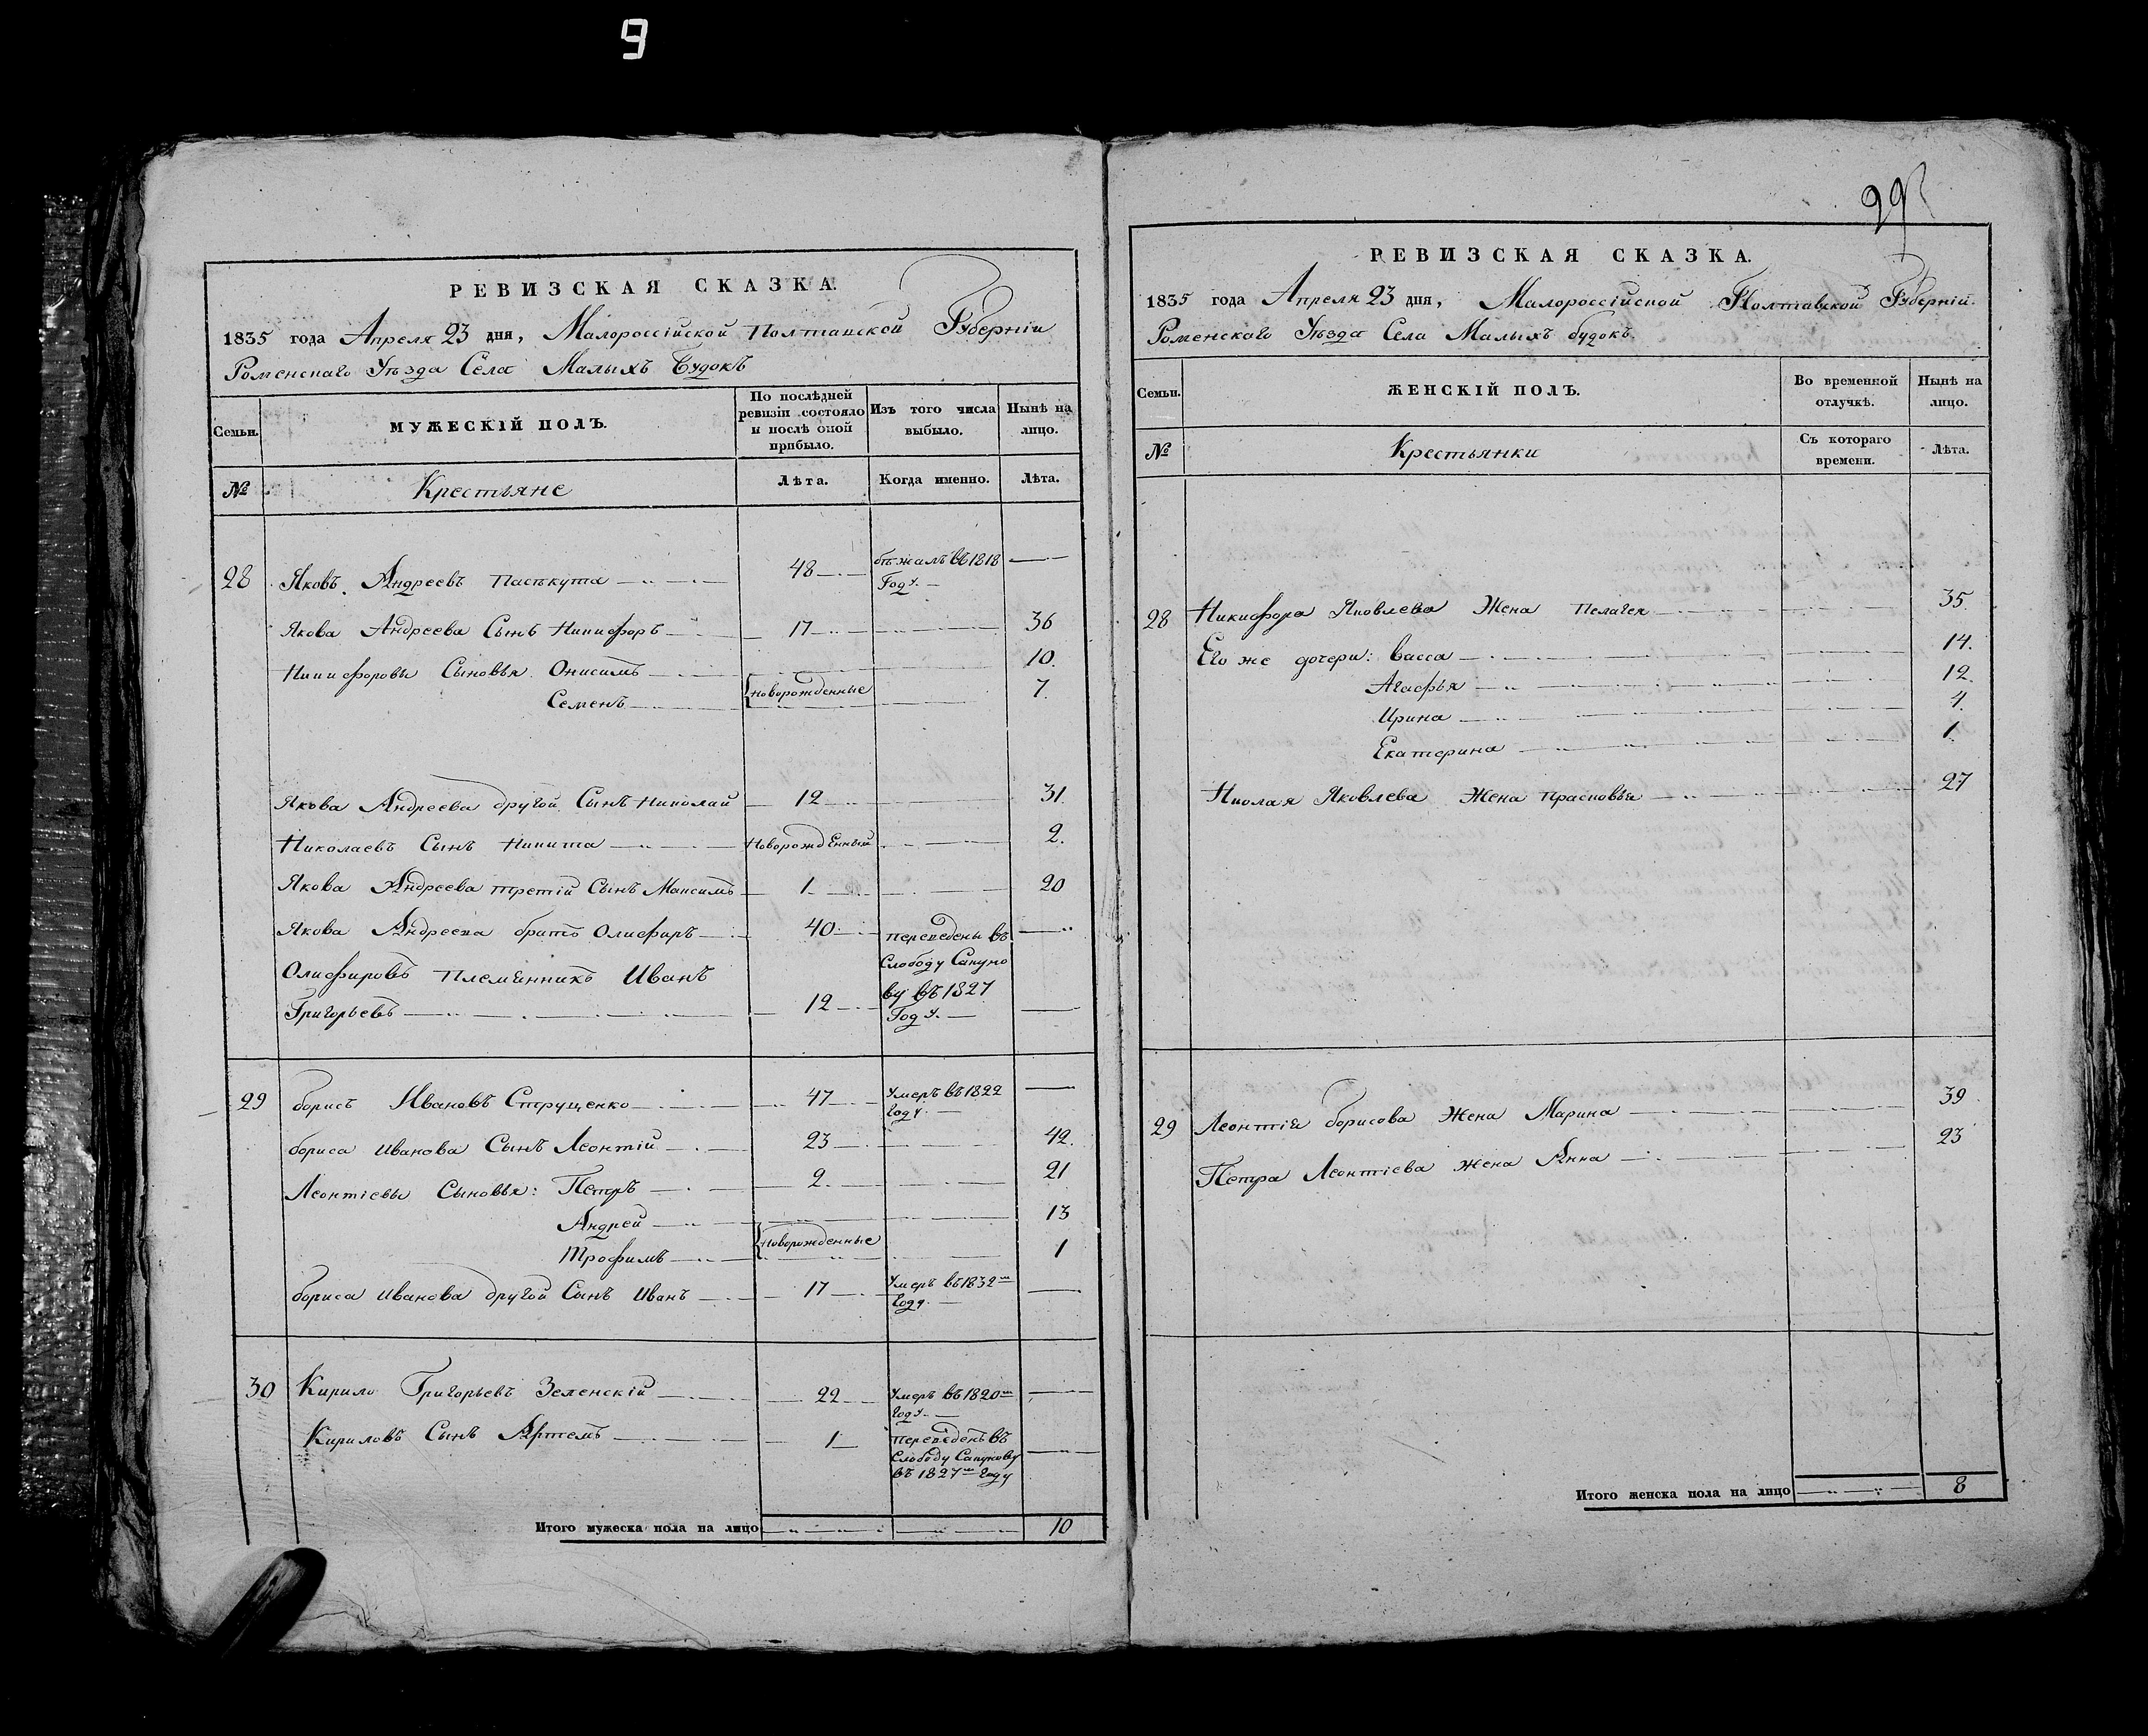 9
РЕВИЗСКАЯ СКАЗКА.
1835 года Апреля 23 дня, Малороссійской Полтавской Губерніи
Роменскаго Уѣзда Села Малыхъ Будокъ
Семьи.
МУЖЕСКІЙ ПОЛЪ.
По послѣдней ревизіи состояло и послѣ оной прибыло.
Изъ того числа выбыло.
Нынѣ на лицо.
№
Крестьяне
Лѣта.
Когда именно.
Лѣта.
28 Яковъ Андреевъ Пасѣкута 48 бѣжалъ въ 1818 Году.
Якова Андреева Сынъ Никифоръ 17 36
Никифоровы Сыновья Онисимъ 10.
Семенъ новорожденные 7
Якова Андреева другой Сынъ Николай 12 31.
Николаевъ Сынъ Никита Новорожденный 2.
Якова Андреева третій Сынъ Максимъ 1 20
Якова Андреева братъ Олифиръ 40 переведены въ
Олифировъ Племянникъ Иванъ Слободу Сапуно
Григорьевъ 12 ву въ 1827 Году.
29 Борисъ Ивановъ Струценко 47 Умеръ въ 1822 Году.
Бориса Иванова Сынъ Леонтій 23 42.
Леонтіевы Сыновья: Петръ 2. 21
Андрей 13
Трофимъ Новорожденные 1
Бориса Иванова другой Сынъ Иванъ 17 Умеръ въ 1832м Году.
30 Кирило Григорьевъ Зеленскій 22 Умеръ въ 1820м Году.
Кириловъ Сынъ Артемъ 1 переведенъ въ
Слободу Сапунову
въ 1827м Году
Итого мужеска пола на лицо 10
РЕВИЗСКАЯ СКАЗКА.
1835 года Апреля 23 дня, Малороссійской Полтавской Губерніи.
Роменскаго Уѣзда Села Малыхъ будокъ.
Семьи.
ЖЕНСКІЙ ПОЛЪ.
Во временной отлучкѣ.
Нынѣ на лицо.
№
Крестьянки
Съ котораго времени.
Лѣта.
28 Никифора Яковлева Жена Пелагея 35.
Его же дочери: Васса 14.
Агафья 12.
Ирина 4.
Екатерина 1
Николая Яковлева Жена Прасковья 27
29 Леонтія Борисова Жена Марина 39
Петра Леонтіева Жена Анна 23
Итого женска пола на лицо 8